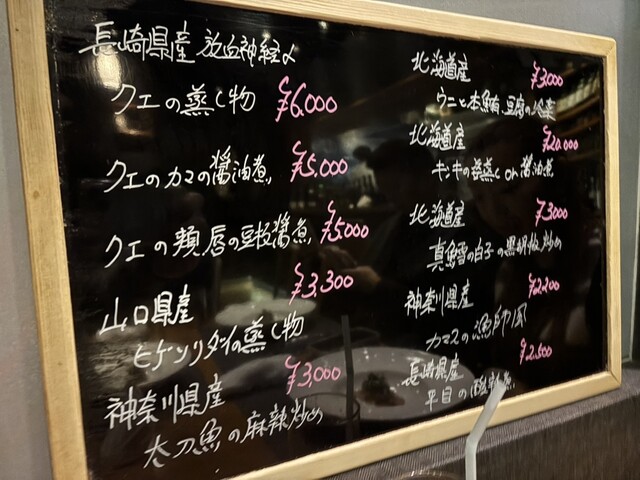 長崎県産 放血神経〆
クエの蒸し物 ¥6.000
クエのカマの醤油煮 ¥5.000
クエの頬唇の豆板醤煮 ¥5.000
¥3.300
山口県産
ヒゲソリダイの蒸し物
¥3.000
神奈川県産
太刀魚の麻辣炒め
北海道産 ¥3.000
ウニと本鮪、豆腐の冷菜
北海道産 ¥20.000
キンキの蒸し or 醤油煮
北海道産 ¥3.000
真鱈の白子の黒胡椒炒め
神奈川県産 ¥2.200
カマスの漁師風
長崎県産 ¥2.500
平目の